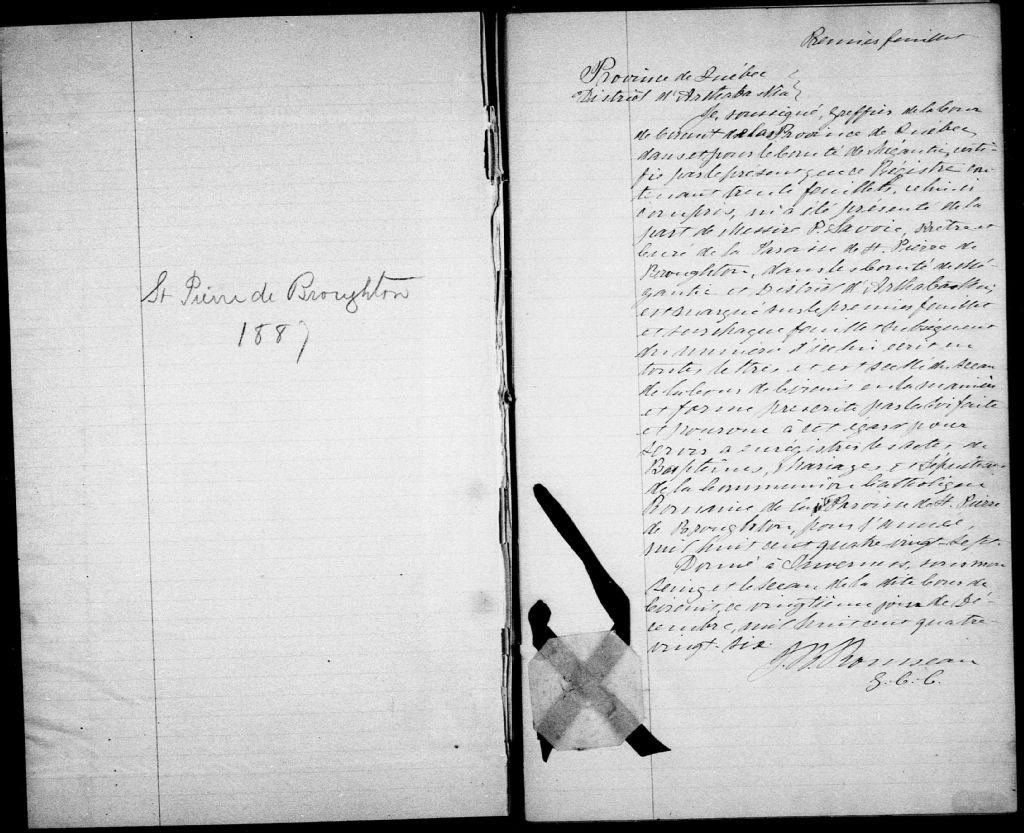 St Pierre de Broughton
1887
Premier feuillet
Province de Québec
District d'Arthabaska
Je, soussigné, Greffier de la Cour
de Circuit de la Province de Québec,
dans et pour le Comté de Mégantic, certi-
fie par le présent que ce Régistre con-
tenant trente feuillets, celui-ci
compris, m'a été présenté de la
part de Messire P. Savoie, Prêtre et
Curé de la Paroisse de St. Pierre de
Broughton, dans le Comté de Mé-
gantic et District d'Arthabaska;
est marqué sur le premier feuillet
et sur chaque feuillet subséquent
du numéro d'icelui écrit en
toutes lettres, et est scellé du sceau
de la Cour de Circuit en la manière
et forme prescrite par la Loi faite
et pourvue à cet égard pour
servir à enrégistrer les actes de
Baptêmes, Mariages et Sépultures
de la Communion Catholique
Romaine de la Paroisse de St. Pierre
de Broughton, pour l'année,
mil huit cent quatre vingt-sept.
Donné à Inverness, sous mon
seing et le sceau de la dite Cour de
Circuit, ce vingtième jour de Dé-
cembre, mil huit cent quatre-
vingt-six
Rousseau
G. C. C.